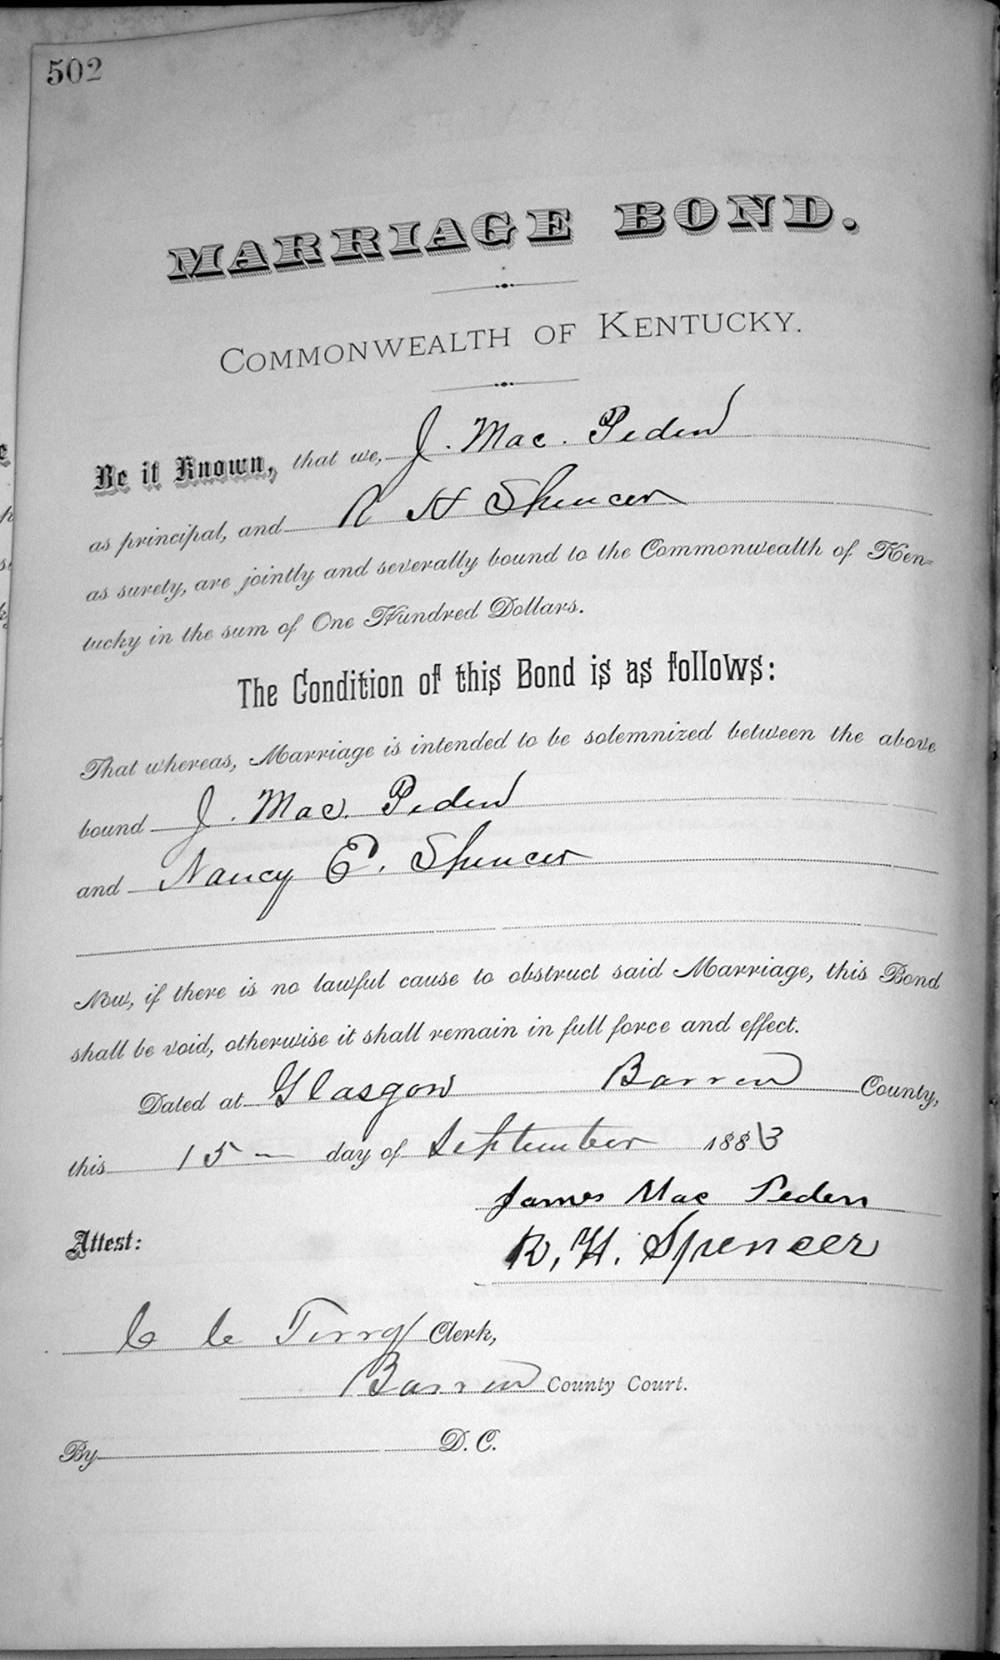 502
MARRIAGE BOND.
COMMONWEALTH OF KENTUCKY.
Be it Known, that we, J. Mac. Peden
as principal, and R H Spencer
as surety, are jointly and severally bound to the Commonwealth of Ken-
tucky in the sum of One Hundred Dollars.
The Condition of this Bond is as follows:
That whereas, Marriage is intended to be solemnized between the above
bound J. Mac. Peden
and Nancy E. Spencer
Now, if there is no lawful cause to obstruct said Marriage, this Bond
shall be void, otherwise it shall remain in full force and effect.
Dated at Glasgow Barren County,
this 15 - day of September 1883
James Mac Peden
Attest: R. H. Spencer
C C Terry Clerk,
Barren County Court.
By D. C.